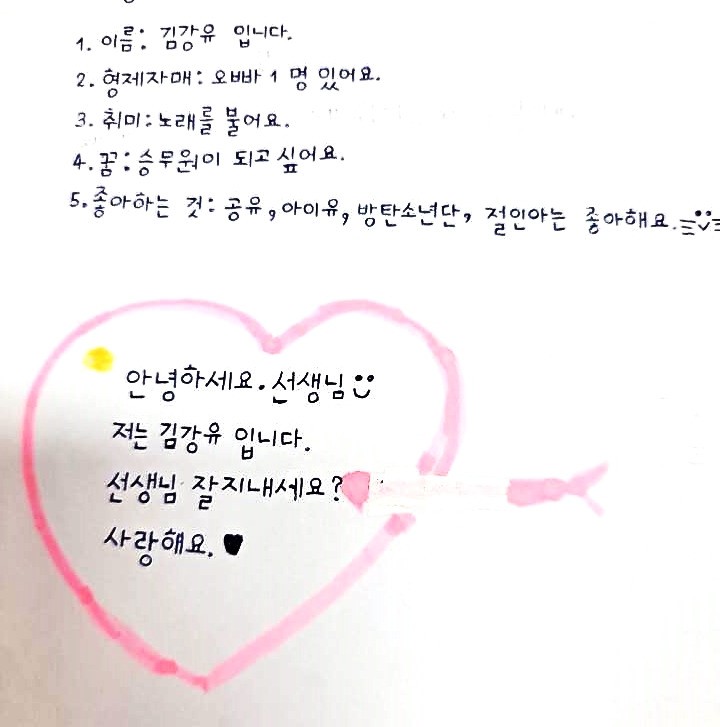 1. 이름: 김강유 입니다.
2. 형제자매: 오빠 1 명 있어요.
3. 취미: 노래를 불어요.
4. 꿈: 승무원이 되고 싶어요.
5. 좋아하는 것: 공유, 아이유, 방탄소년단, 절인아는 좋아해요.
안녕하세요. 선생님
저는 김강유 입니다.
선생님 잘지내세요?
사랑해요.